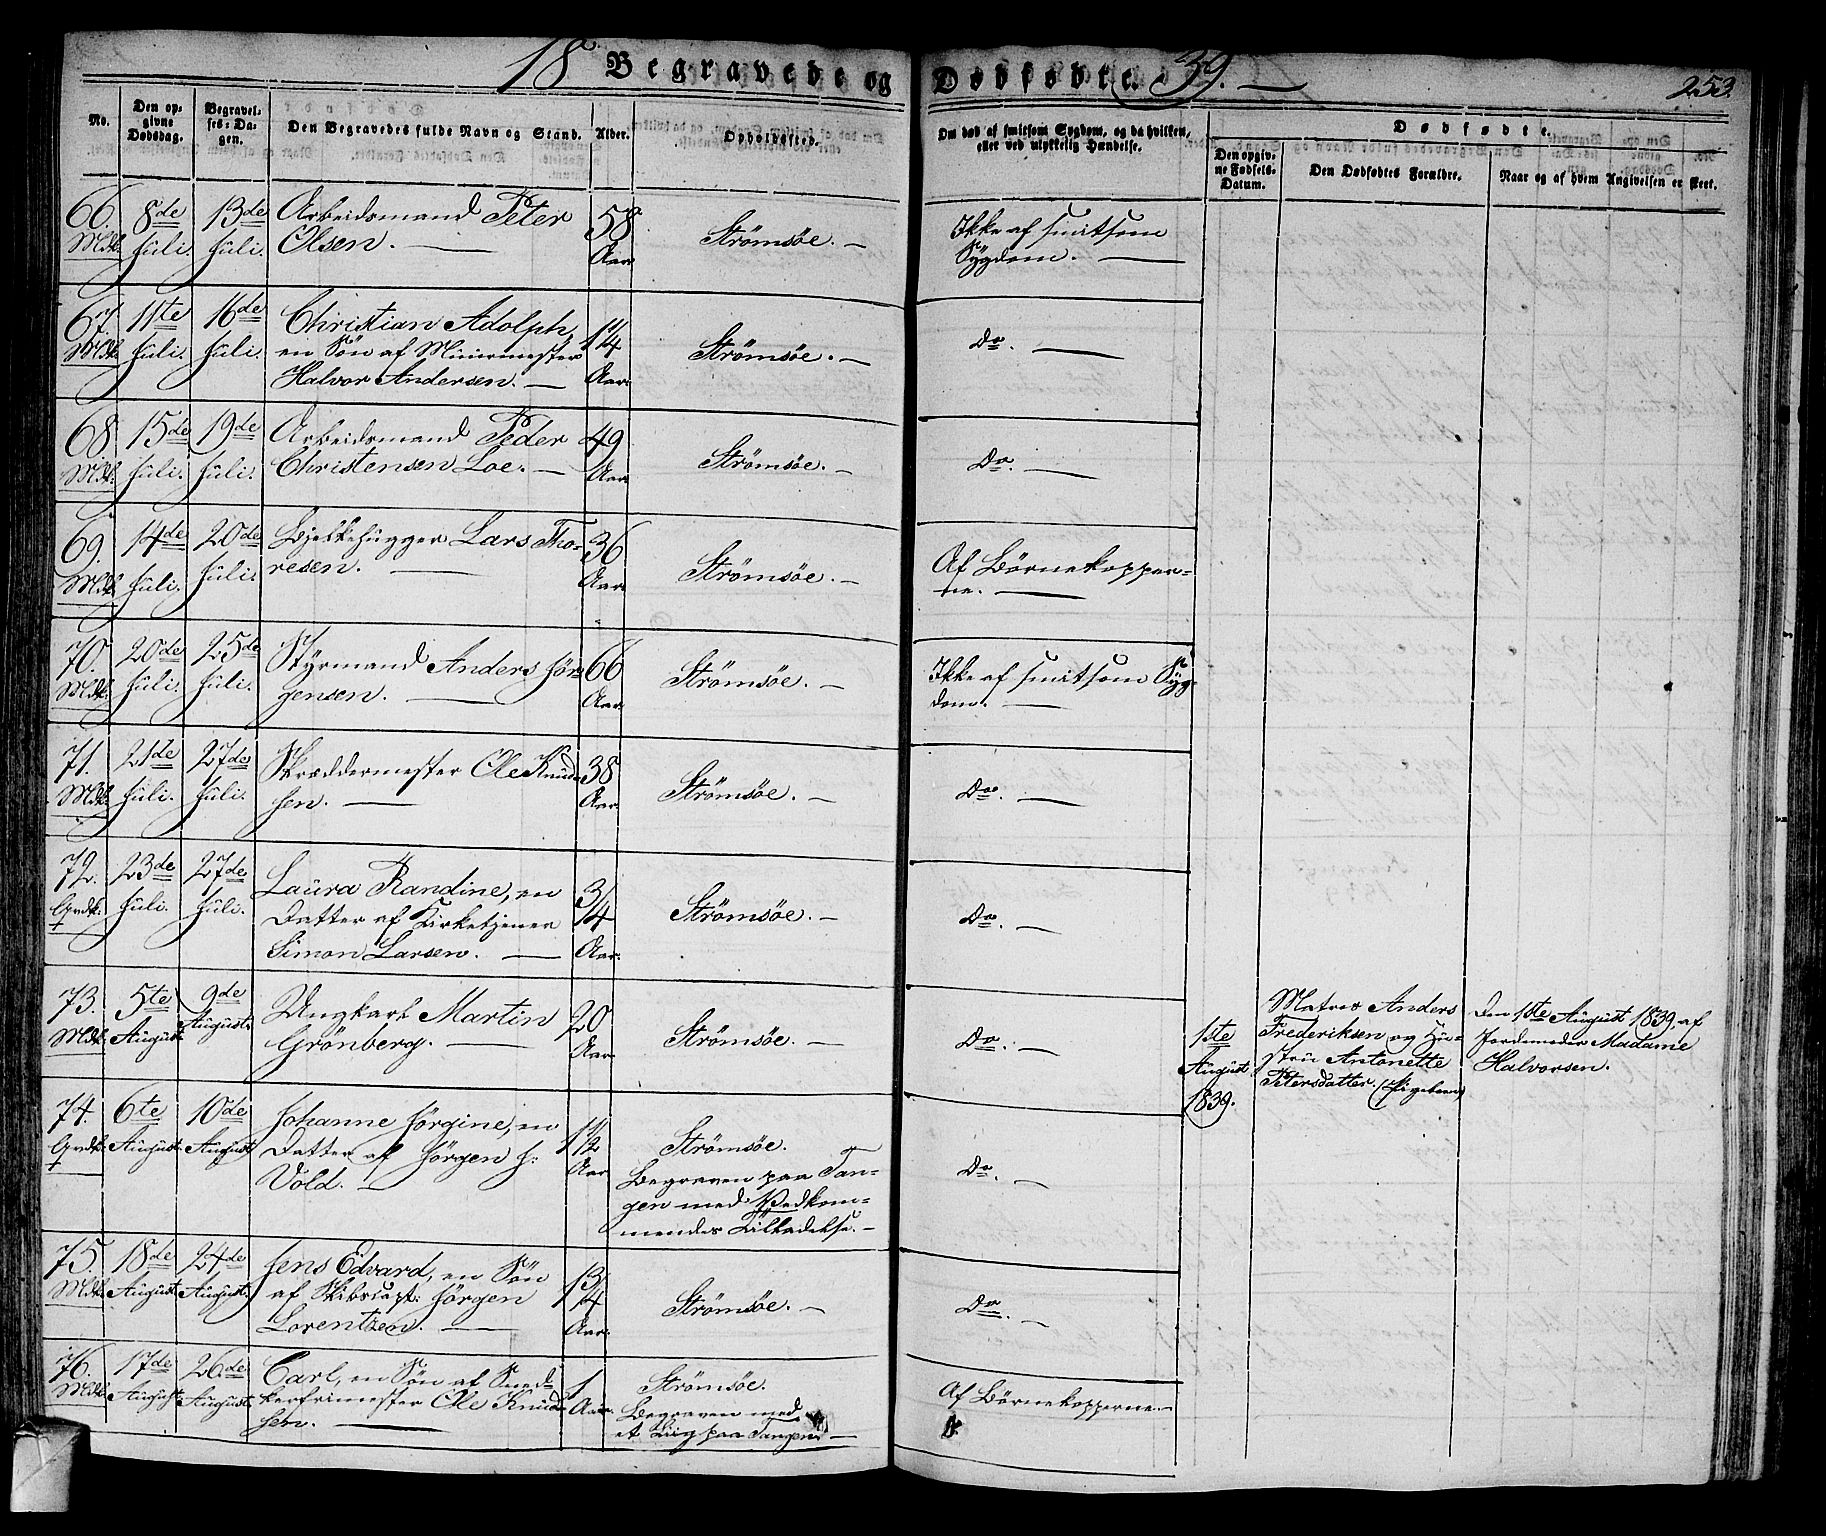 18 Begravede og Dødfødte. 39. 253.
No.
Den opgivne Dødsdag.
Begravelses-Dagen.
Den Begravedes fulde Navn og Stand.
Alder.
Opholdssted.
Om død af smitsom Sygdom, og da hvilken, eller ved ulykkelig Hændelse.
Dødfødte.
Den opgivne Fødsels-Datum.
Den Dødfødtes Forældre.
Naar og af hvem Angivelsen er skeet.
66. Mdk. 8de Juli. 13de Juli. Arbeidsmand Peter
Olsen. — 58 Aar Strömsöe. — Ikke af smitsom
Sygdom. —
67. Mdk. 11te Juli. 16de Juli. Christian Adolph,
en Sön af Muurmester
Halvor Andersen. — 1 1/4 Aar. Strömsöe. — Do. —
68. Mdk. 15de Juli. 19de Juli. Arbeidsmand Peder
Christensen Loe. — 49 Aar Strömsöe. — Do. —
69. Mdk. 14de Juli. 20de Juli. Bjelkehugger Lars Tho-
resen. — 36 Aar Strömsöe. — Af Börnekopper-
ne. —
70. Mdk. 20de Juli. 25de Juli. Styrmand Anders Jör-
gensen. — 66 Aar. Strömsöe. — Ikke af smitsom Syg-
dom. —
71. Mdk. 21de Juli. 27de Juli. Skræddermester Ole Knud-
sen. — 38 Aar. Strömsöe. — Do. —
72. Qvdk. 23de Juli. 27de Juli. Laura Randine, en
Datter af Kirketjener
Simon Larsen. — 3/4 Aar. Strömsöe. — Do. —
73. Mdk. 5te August. 9de August. Ungkarl Martin
Grönberg. — 20 Aar. Strömsöe. — Do. —
1ste
August
1839.
Matros Anders
Frederiksen og Hu-
stru Antonette
Petersdatter. (Pigebarn)
Den 1ste August 1839 af
Jordemoder Madame
Halvorsen.
74. Qvdk. 6te August. 10de August Johanne Jörgine, en
Datter af Jörgen H:
Vold. — 1 1/2 Aar Strömsöe.
Begraven paa Tan-
gen med Vedkom-
mendes Tilladelse. — Do. —
75. Mdk. 18de August. 24de August. Jens Edvard, en Sön
af Skibscapt: Jörgen
Lorentzen. — 1 3/4 Aar. Strömsöe. — Do. —
76. Mdk. 17de August. 26de August. Carl, en Sön af Sned-
kersvennemester Ole Knud-
sen. — 1 Aar. Strömsöe.
Begraven med
et Liig paa Tangen — Af Börnekopperne. —